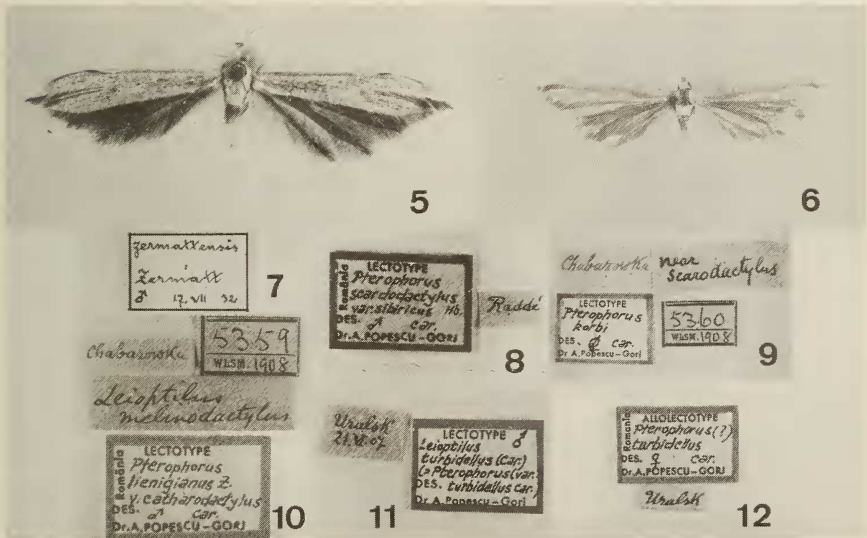 5
6
zermattensis
Zermatt
♂ 17.VII 32
7
România
LECTOTYPE
Pterophorus
scarodactylus
var. sibiricus Hb.
DES. ♂ car.
Dr. A. POPESCU-GORJ
Raddé
8
Chabarowka
near
scarodactylus
LECTOTYPE
Pterophorus
korbi
DES. ♂ car.
Dr A. Popescu-Gorj
5360
WLSM. 1908
9
Chabarowka
5359
WLSM. 1908
Leioptilus
melinodactylus
România
LECTOTYPE
Pterophorus
lienigianus Z.
v. catharodactylus
DES. ♂ car.
Dr. A. POPESCU-GORJ
10
Uralsk
LECTOTYPE ♂
Leioptilus
turbidellus (Car.)
(= Pterophorus (var.
DES. turbidellus Car.)
Dr A. Popescu-Gorj
11
România
ALLOLECTOTYPE
Pterophorus (?)
turbidellus
DES. ♀ car.
Dr. A. POPESCU-GORJ
Uralsk
12